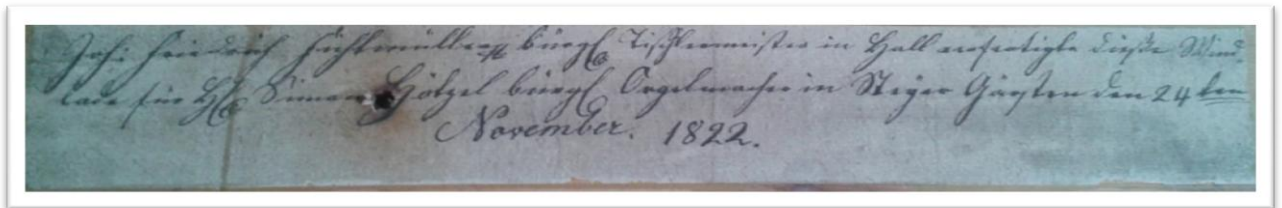 Joh: Friedrich Füchtmüller bürgl Tischlermeister in Hall verfertigte diese Wind
lade für H. Simon Hötzel bürgl Orgelmacher in Steyer Garsten den 24 ten
November. 1822.